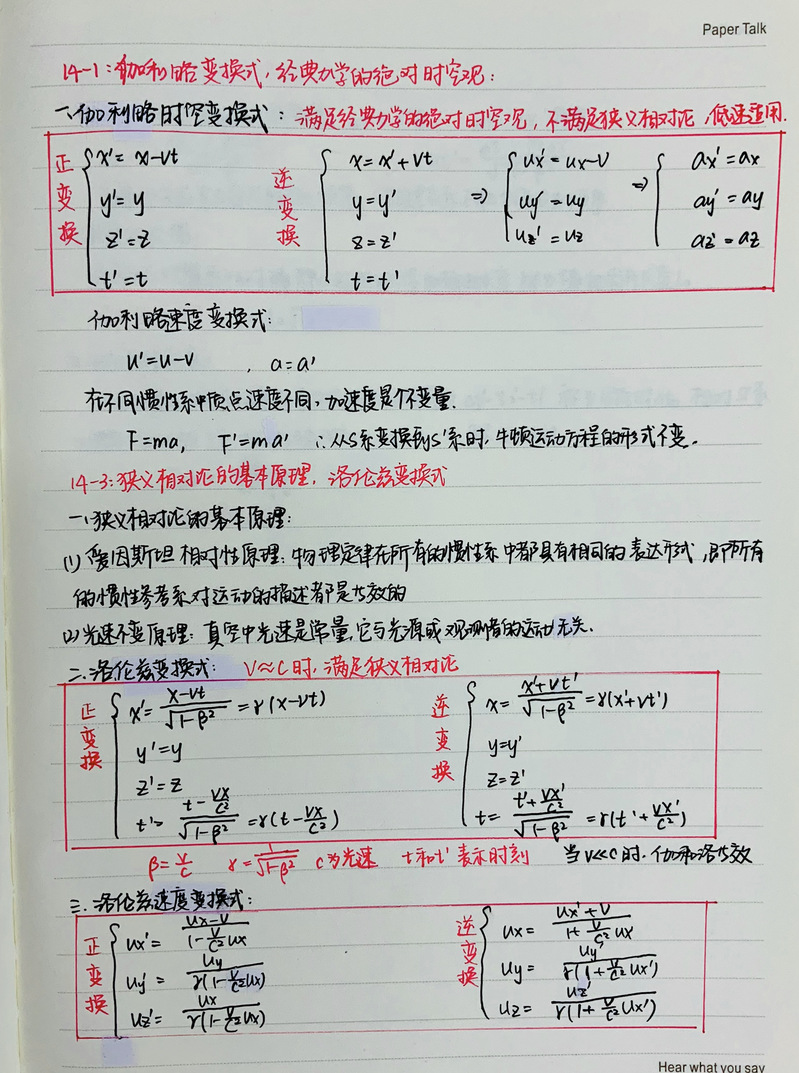 Paper Talk
14-1:伽利略变换式,经典力学的绝对时空观:
一.伽利略时空变换式:满足经典力学的绝对时空观,不满足狭义相对论,低速适用.
正变换 { x'=x-vt 逆变换 { x=x'+vt ⇒ { ux'=ux-v ⇒ { ax'=ax
y'=y y=y' uy'=uy ay'=ay
z'=z z=z' uz'=uz az'=az
t'=t t=t'
伽利略速度变换式:
u'=u-v , a=a'
在不同惯性系中质点速度不同,加速度是个不变量.
F=ma, F'=ma' ∴从S系变换到S'系时,牛顿运动方程的形式不变.
14-3:狭义相对论的基本原理,洛伦兹变换式
一.狭义相对论的基本原理:
(1)爱因斯坦相对性原理:物理定律在所有的惯性系中都具有相同的表达形式,即所有
的惯性参考系对运动的描述都是等效的
(2)光速不变原理:真空中光速是常量,它与光源或观测者的运动无关.
二.洛伦兹变换式: v≈c时,满足狭义相对论
正变换 { x'=(x-vt)/√(1-β²)=γ(x-vt) 逆变换 { x=(x'+vt')/√(1-β²)=γ(x'+vt')
y'=y y=y'
z'=z z=z'
t'=(t-vx/c²)/√(1-β²)=γ(t-vx/c²) t=(t'+vx'/c²)/√(1-β²)=γ(t'+vx'/c²)
β=v/c γ=1/√(1-β²) c为光速 t和t'表示时刻 当v≪c时,伽和洛等效
三.洛伦兹速度变换式:
正变换 { ux'=(ux-v)/(1-v/c² ux) 逆变换 { ux=(ux'+v)/(1+v/c² ux)
uy'=uy/γ(1-v/c² ux) uy=uy'/γ(1+v/c² ux')
uz'=ux/γ(1-v/c² ux) uz=uz'/γ(1+v/c² ux')
Hear what you say